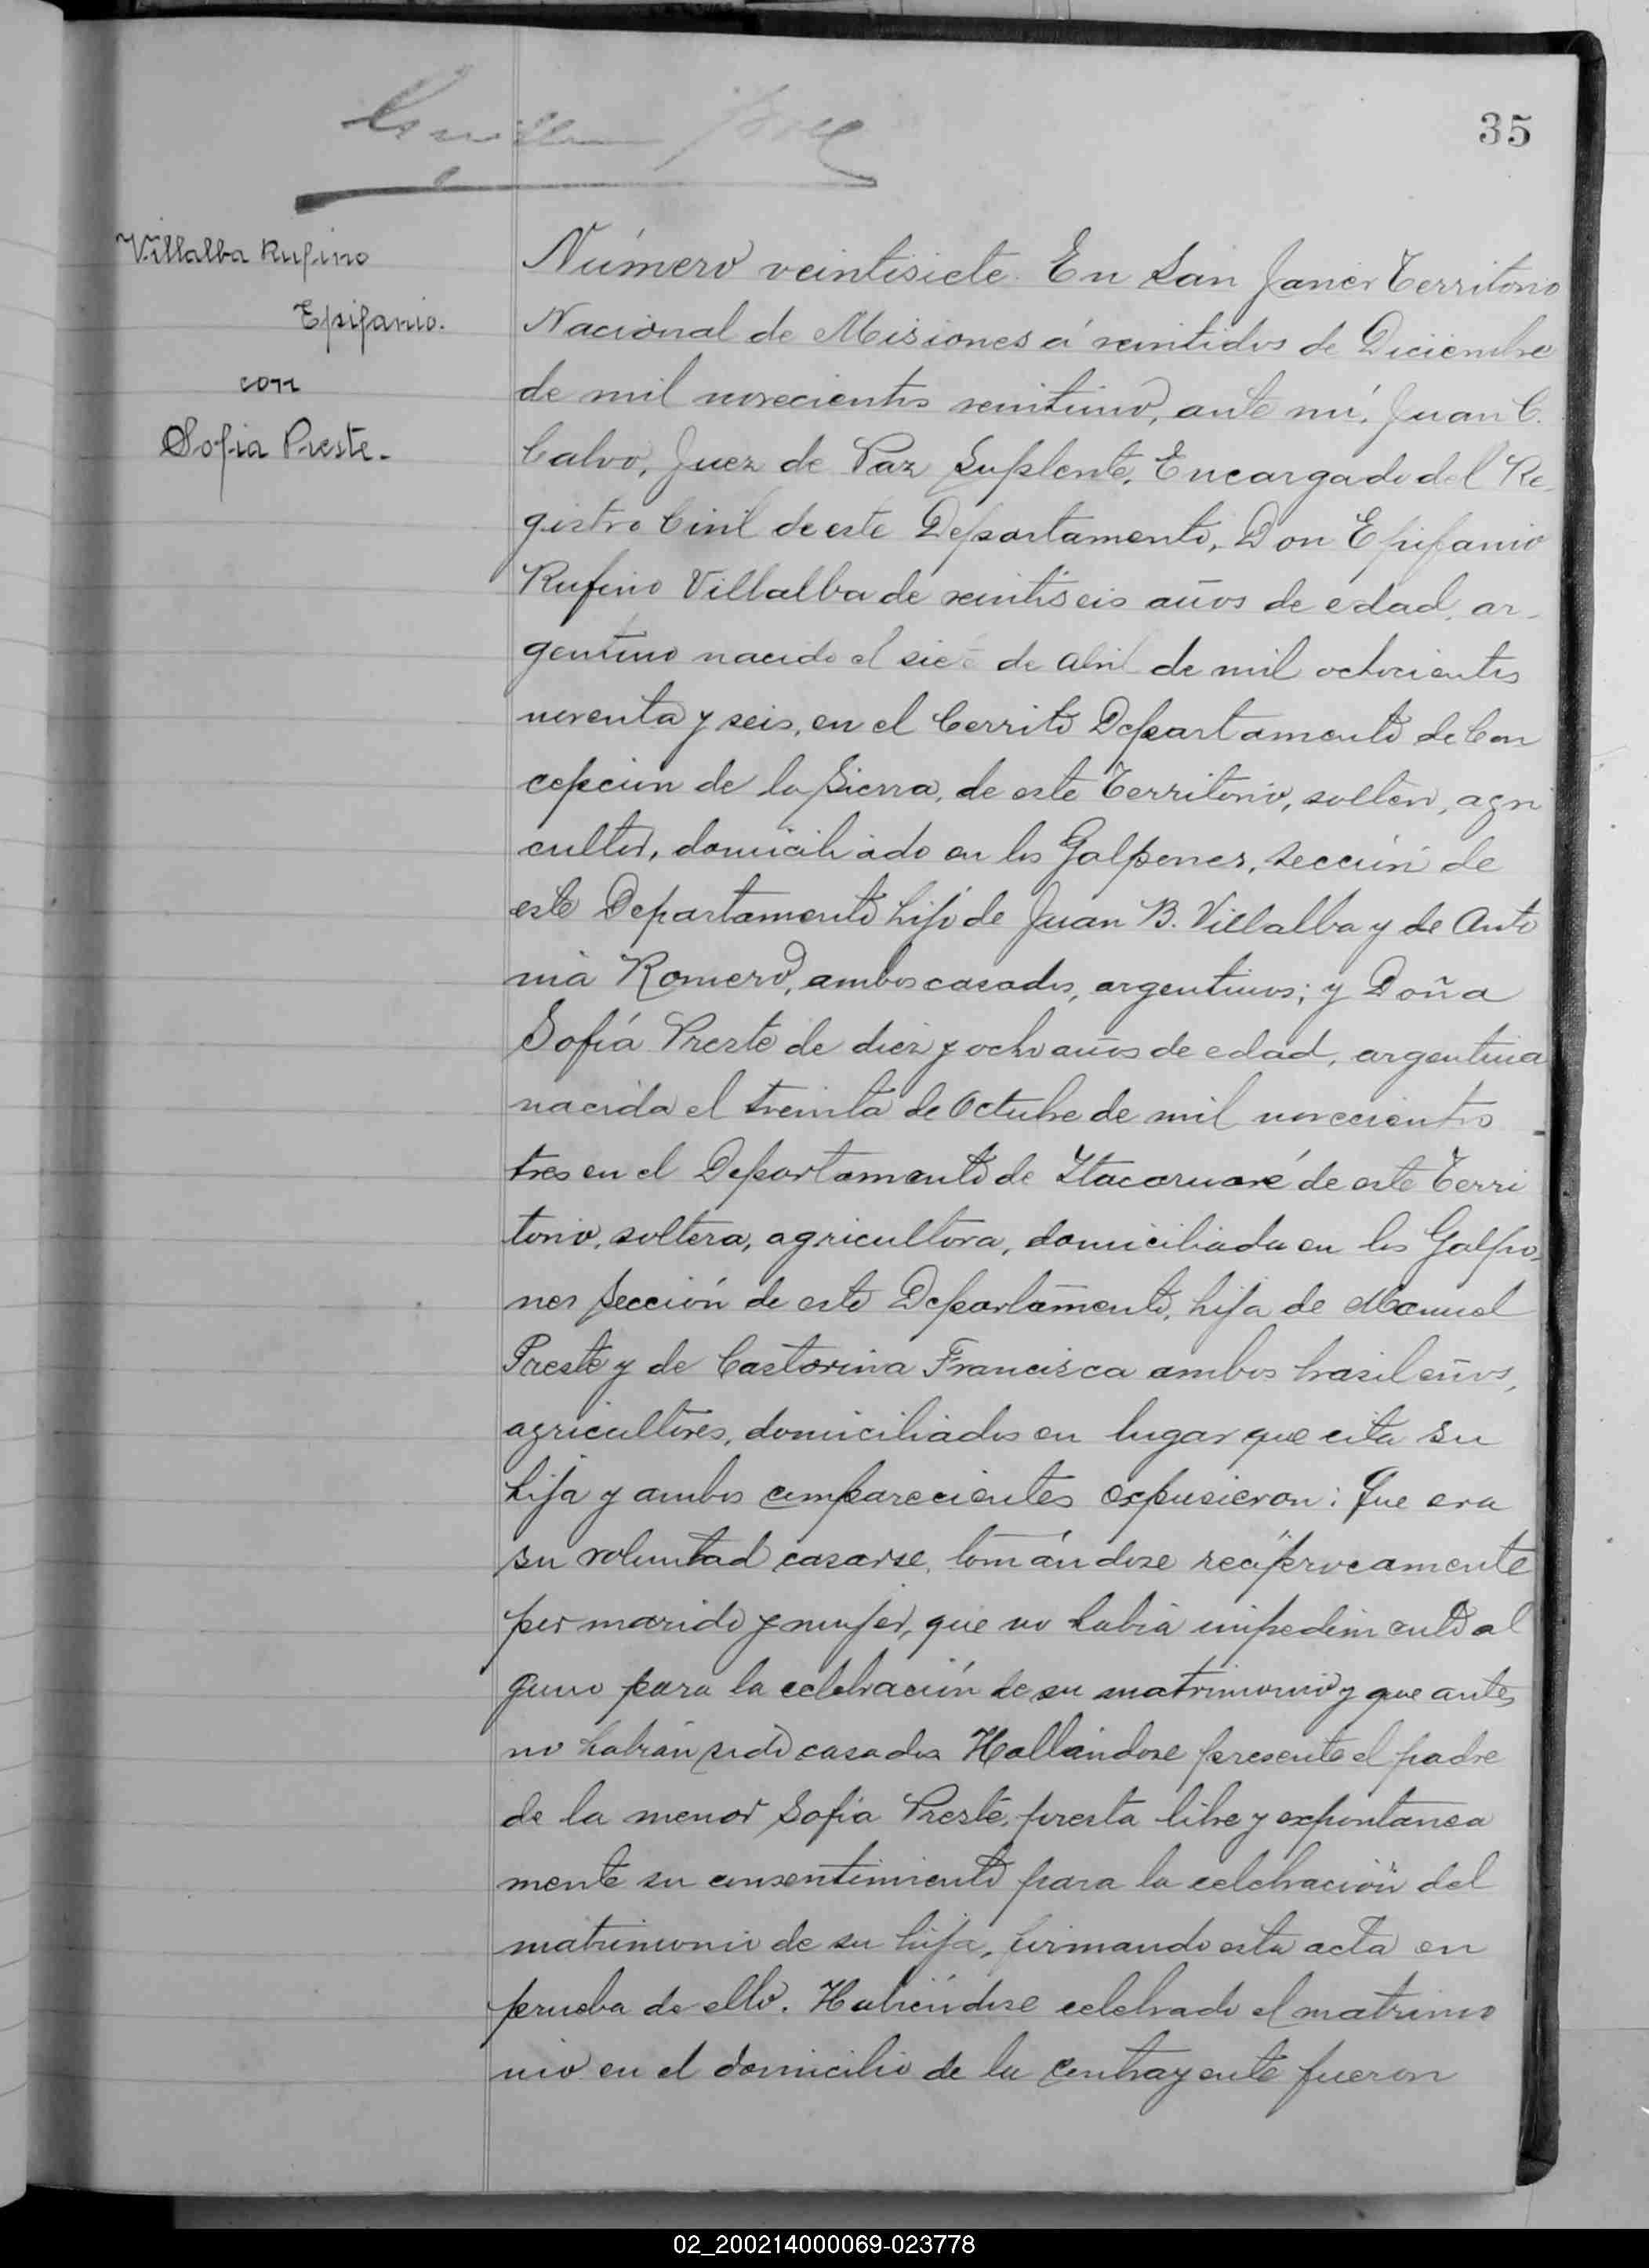 35
Villalba Rufino
Epifanio.
con
Sofia Preste.
Número veintisiete. En San Javier Territorio
Nacional de Misiones á veintidos de Diciembre
de mil novecientos veintiuno, ante mí, Juan C.
Calvo, Juez de Paz Suplente, Encargado del Re
gistro Civil de este Departamento, Don Epifanio
Rufino Villalba de veintiseis años de edad, ar-
gentino nacido el siete de abril de mil ochocientos
noventa y seis, en el Cerrito Departamento de Con
cepcion de la Sierra, de este Territorio, soltero, agri
cultor, domiciliado en los Galpones, sección de
este Departamento hijo de Juan B. Villalba y de Anto
nia Romero, ambos casados, argentinos; y Doña
Sofía Preste de diez y ocho años de edad, argentina
nacida el treinta de Octubre de mil novecientos
tres en el Departamento de Itacaruaré de este Terri
torio, soltera, agricultora, domiciliada en los Galpo-
nes sección de este Departamento, hija de Manuel
Preste y de Castorina Francisca ambos brasileños,
agricultores, domiciliados en lugar que cita su
hija y ambos comparecientes expusieron: Que era
su voluntad casarse, tomándose recíprocamente
por marido y mujer, que no habia impedimento al
guno para la celebración de su matrimonio y que antes
no habían sido casados Hallándose presente el padre
de la menor Sofía Preste, presta libre y expontanea
mente su consentimiento para la celebración del
matrimonio de su hija, firmando esta acta en
prueba de ello. Habiéndose celebrado el matrimo
nio en el domicilio de la contrayente fueron
02_200214000069-023778